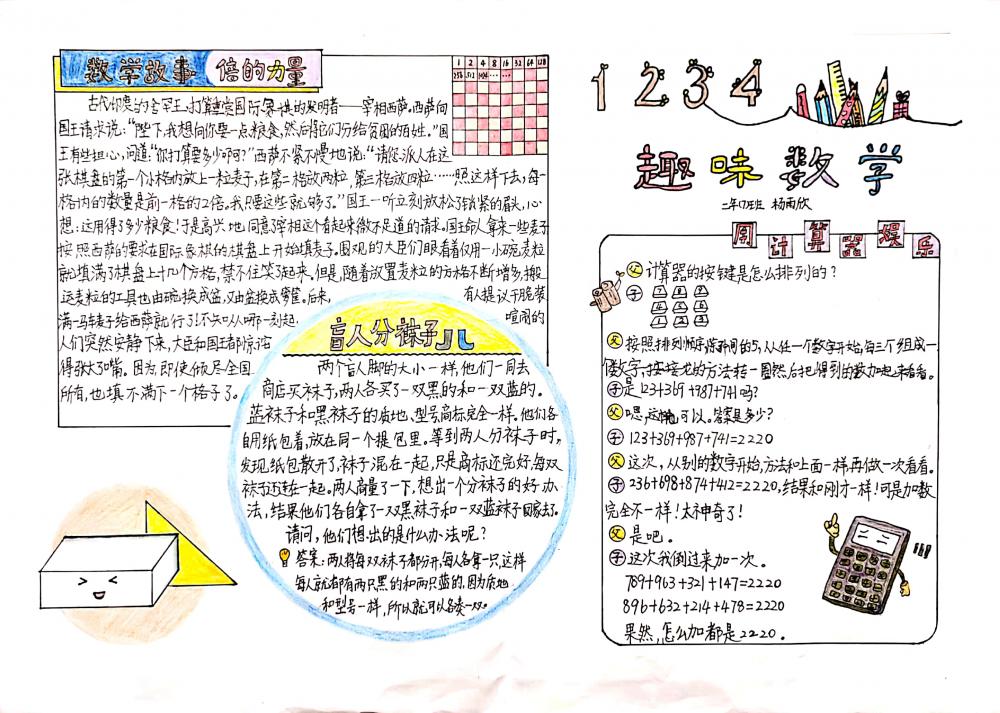 数学故事 倍的力量
1 2 4 8 16 32 64 128
256 512 1024 ……
古代印度的舍罕王,打算重赏国际象棋的发明者——宰相西萨。西萨向
国王请求说:“陛下,我想向你要一点粮食,然后将它们分给贫困的百姓。”国
王有些担心,问道:“你打算要多少呀?”西萨不紧不慢地说:“请您派人在这
张棋盘的第一个小格内放上一粒麦子,在第二格放两粒,第三格放四粒……照这样下去,每一
格内的数量是前一格的2倍,我只要这些就够了。”国王一听立刻放松了锁紧的眉头,心
想:这用得了多少粮食!于是高兴地同意了宰相这个看起来微不足道的请求。国王命人拿来一些麦子
按照西萨的要求在国际象棋的棋盘上开始填麦子。围观的大臣们眼看着仅用一小碗麦粒
就填满了棋盘上十几个方格,禁不住笑了起来。但是,随着放置麦粒的方格不断增多,搬
运麦粒的工具也由碗换成盆,又由盆换成箩筐。后来,有人提议干脆装
满一马车麦子给西萨就行了!不知从哪一刻起,喧闹的
人们突然安静下来,大臣和国王都惊诧
得张大了嘴。因为即使倾尽全国
所有,也填不满下一个格子了。
盲人分袜子儿
两个盲人脚的大小一样,他们一同去
商店买袜子,两人各买了一双黑的和一双蓝的。
蓝袜子和黑袜子的质地、型号商标完全一样。他们各
自用纸包着,放在同一个提包里。等到两人分袜子时,
发现纸包散开了,袜子混在一起,只是商标还完好,每双
袜子还连在一起。两人商量了一下,想出一个分袜子的好办
法,结果他们各自拿了一双黑袜子和一双蓝袜子回家去了。
请问,他们想出的是什么办法呢?
答案:两人将每双袜子都分开,每人各拿一只,这样
每人就都有两只黑的和两只蓝的。因为质地
和型号一样,所以就可以各凑一双。
1 2 3 4
趣味数学
二年(7)班 杨雨欣
用计算器娱乐
父 计算器的按键是怎么排列的?
子 7 8 9
4 5 6
1 2 3
父 按照排列顺序,除中间的5,从任一个数字开始,每三个组成一
个数字,按接龙的方法转一圈,然后把得到的数加起来看看。
子 是123+369+987+741吗?
父 嗯,这也可以。答案是多少?
子 123+369+987+741=2220
父 这次,从别的数字开始,方法和上面一样,再做一次看看。
子 236+698+874+412=2220,结果和刚才一样!可是加数
完全不一样!太神奇了!
父 是吧。
子 这次我倒过来加一次。
789+963+321+147=2220
896+632+214+478=2220
果然,怎么加都是2220。